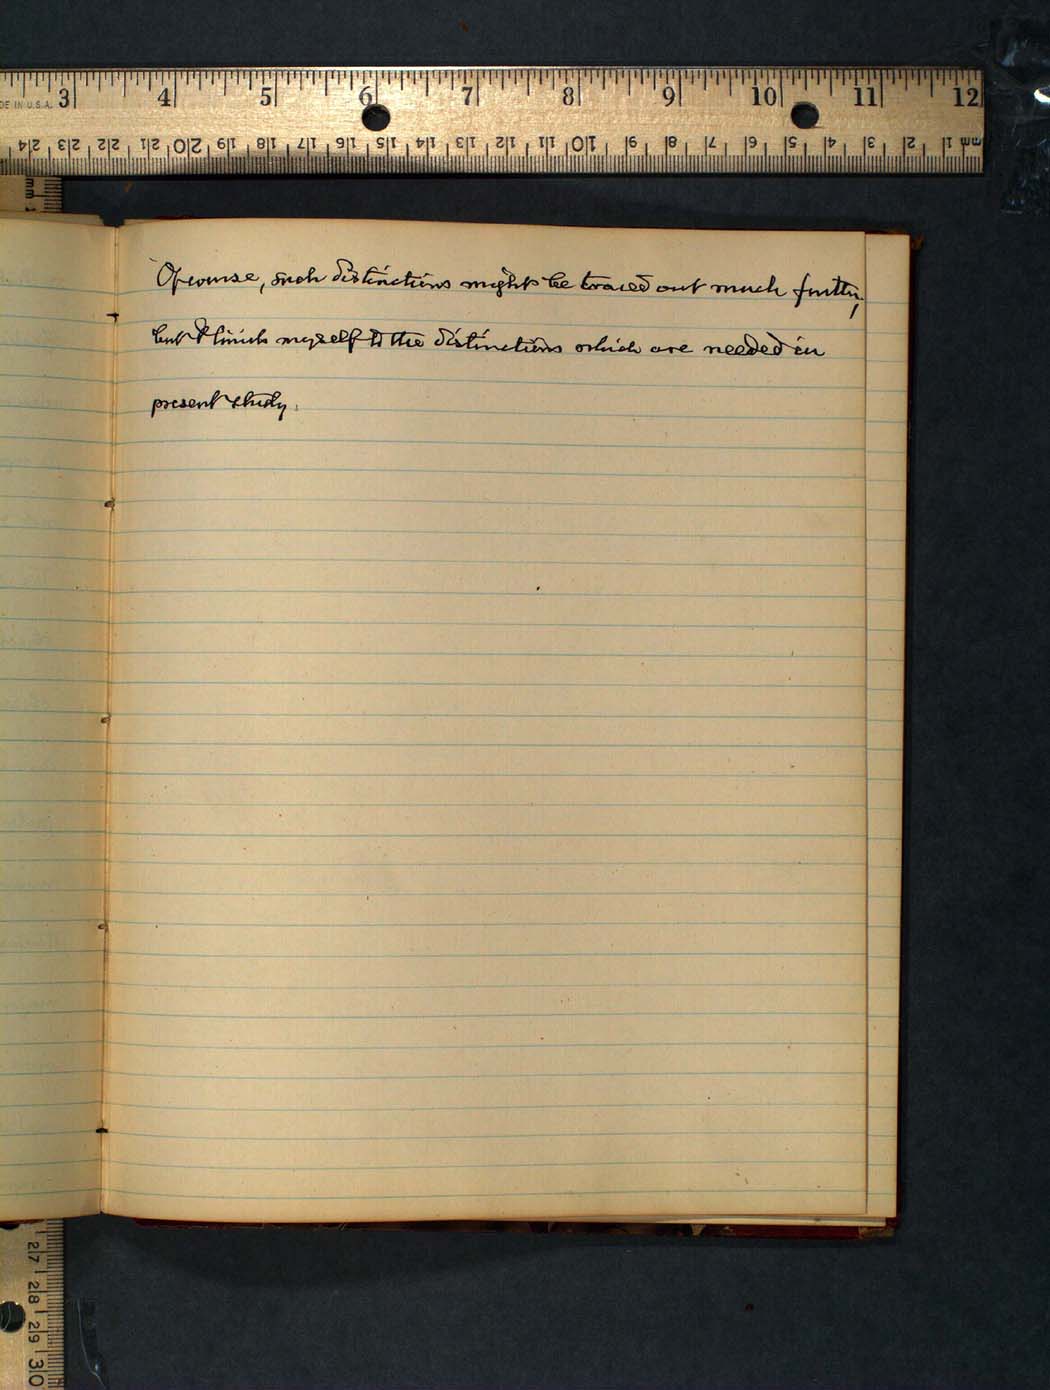 DE IN U.S.A. 3 4 5 6 7 8 9 10 11 12
24 23 22 21 20 19 18 17 16 15 14 13 12 11 10 9 8 7 6 5 4 3 2 1 mm
mm 1
Of course, such distinctions might be traced out much further,
but I limit myself to the distinctions which are needed in
present study.
27 28 29 30